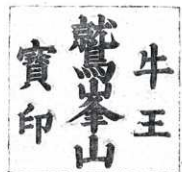 牛王
鷲峯山
寳印